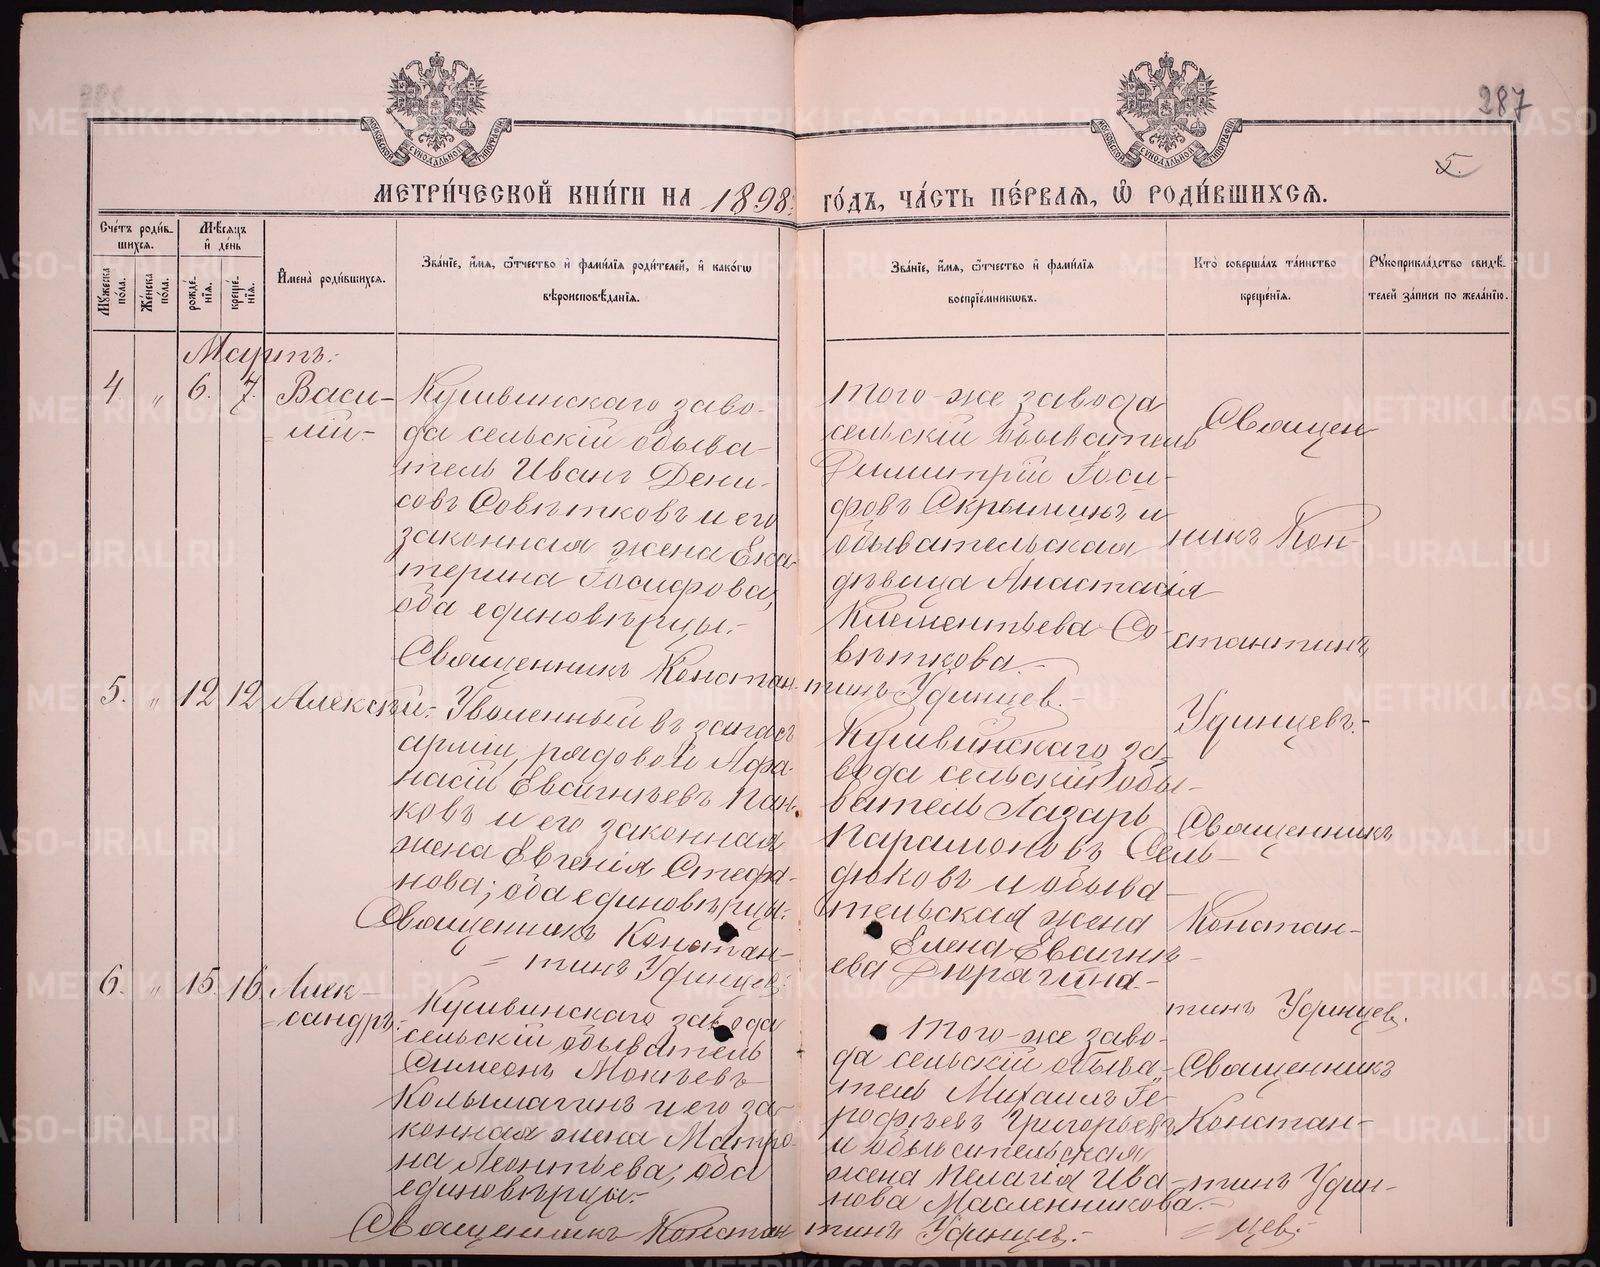 287
5.
МЕТРИ́ЧЕСКОЙ КНИ́ГИ НА 1898 ГО́ДЪ, ЧА́СТЬ ПЕ́РВАѦ, Ѡ҆ РОДИ́ВШИХСѦ.
Сче́тъ роди́в-
шихсѧ.
Мꙋжеска по́ла.
Же́нска по́ла.
Мѣ́сѧцъ
и҆ де́нь
рожде́-
нїѧ.
креще́-
нїѧ.
И҆мена̀ роди́вшихсѧ.
Зва́нїе, и҆́мѧ, ѻ҆́тчество и҆ фами́лїѧ роди́телей, и҆ како́гѡ
вѣроисповѣ́данїѧ.
Зва́нїе, и҆́мѧ, ѻ҆́тчество и҆ фами́лїѧ
воспрїе́мникѡвъ.
Кто̀ соверша́лъ та́инство
креще́нїѧ.
Рꙋкоприкла́дство свидѣ́-
телей за́писи по жела́нїю.
Мартъ.
4. „ 6. 7. Васи-
лій-
Кушвинскаго заво-
да сельскій обыва-
тель Иванъ Дени-
совъ Совѣтковъ и его
законная жена Ека-
терина Іосифова,
оба единовѣрцы.-
того-же завода
сельскій обыватель
Димитрій Іоси-
фовъ Скрыминъ и
обывательская
дѣвица Анастасія
Климентьева Со-
вѣткова.
Священ
никъ Кон-
стантинъ
Удинцевъ.-
Священникъ Константинъ Удинцев.-
5. „ 12 12 Алексѣй.
Уволенный въ запасъ
арміи, рядовой Афа-
насій Евсигнѣевъ Пан-
ковъ и его законная
жена Евгенія Стефа-
нова; оба единовѣрцы.
Священникъ Констан-
тинъ Удинцев.
Кушвинскаго за-
вода сельскій обы-
ватель Лазарь
Парамоновъ Сель-
дюковъ и обыва-
тельская жена
Елена Евсигнѣ-
ева Дюрягина.-
Священникъ
Констан-
тинъ Удинцев.
6. „ 15. 16 Алек-
сандръ.
Кушвинскаго завода
сельскій обыватель
Симеонъ Мокѣевъ
Колымагинъ и его за-
конная жена Матро-
на Леонтьева; оба
единовѣрцы.-
Того-же заво-
да сельскій обыва-
тель Михаилъ Ге-
рофѣевъ Григорьевъ
и обывательская
жена Пелагія Ива-
нова Масленникова.-
Священникъ
Констан-
тинъ Удин-
цев.
Священникъ Константинъ Удинцев.-
METRIKI.GASO-URAL.RU